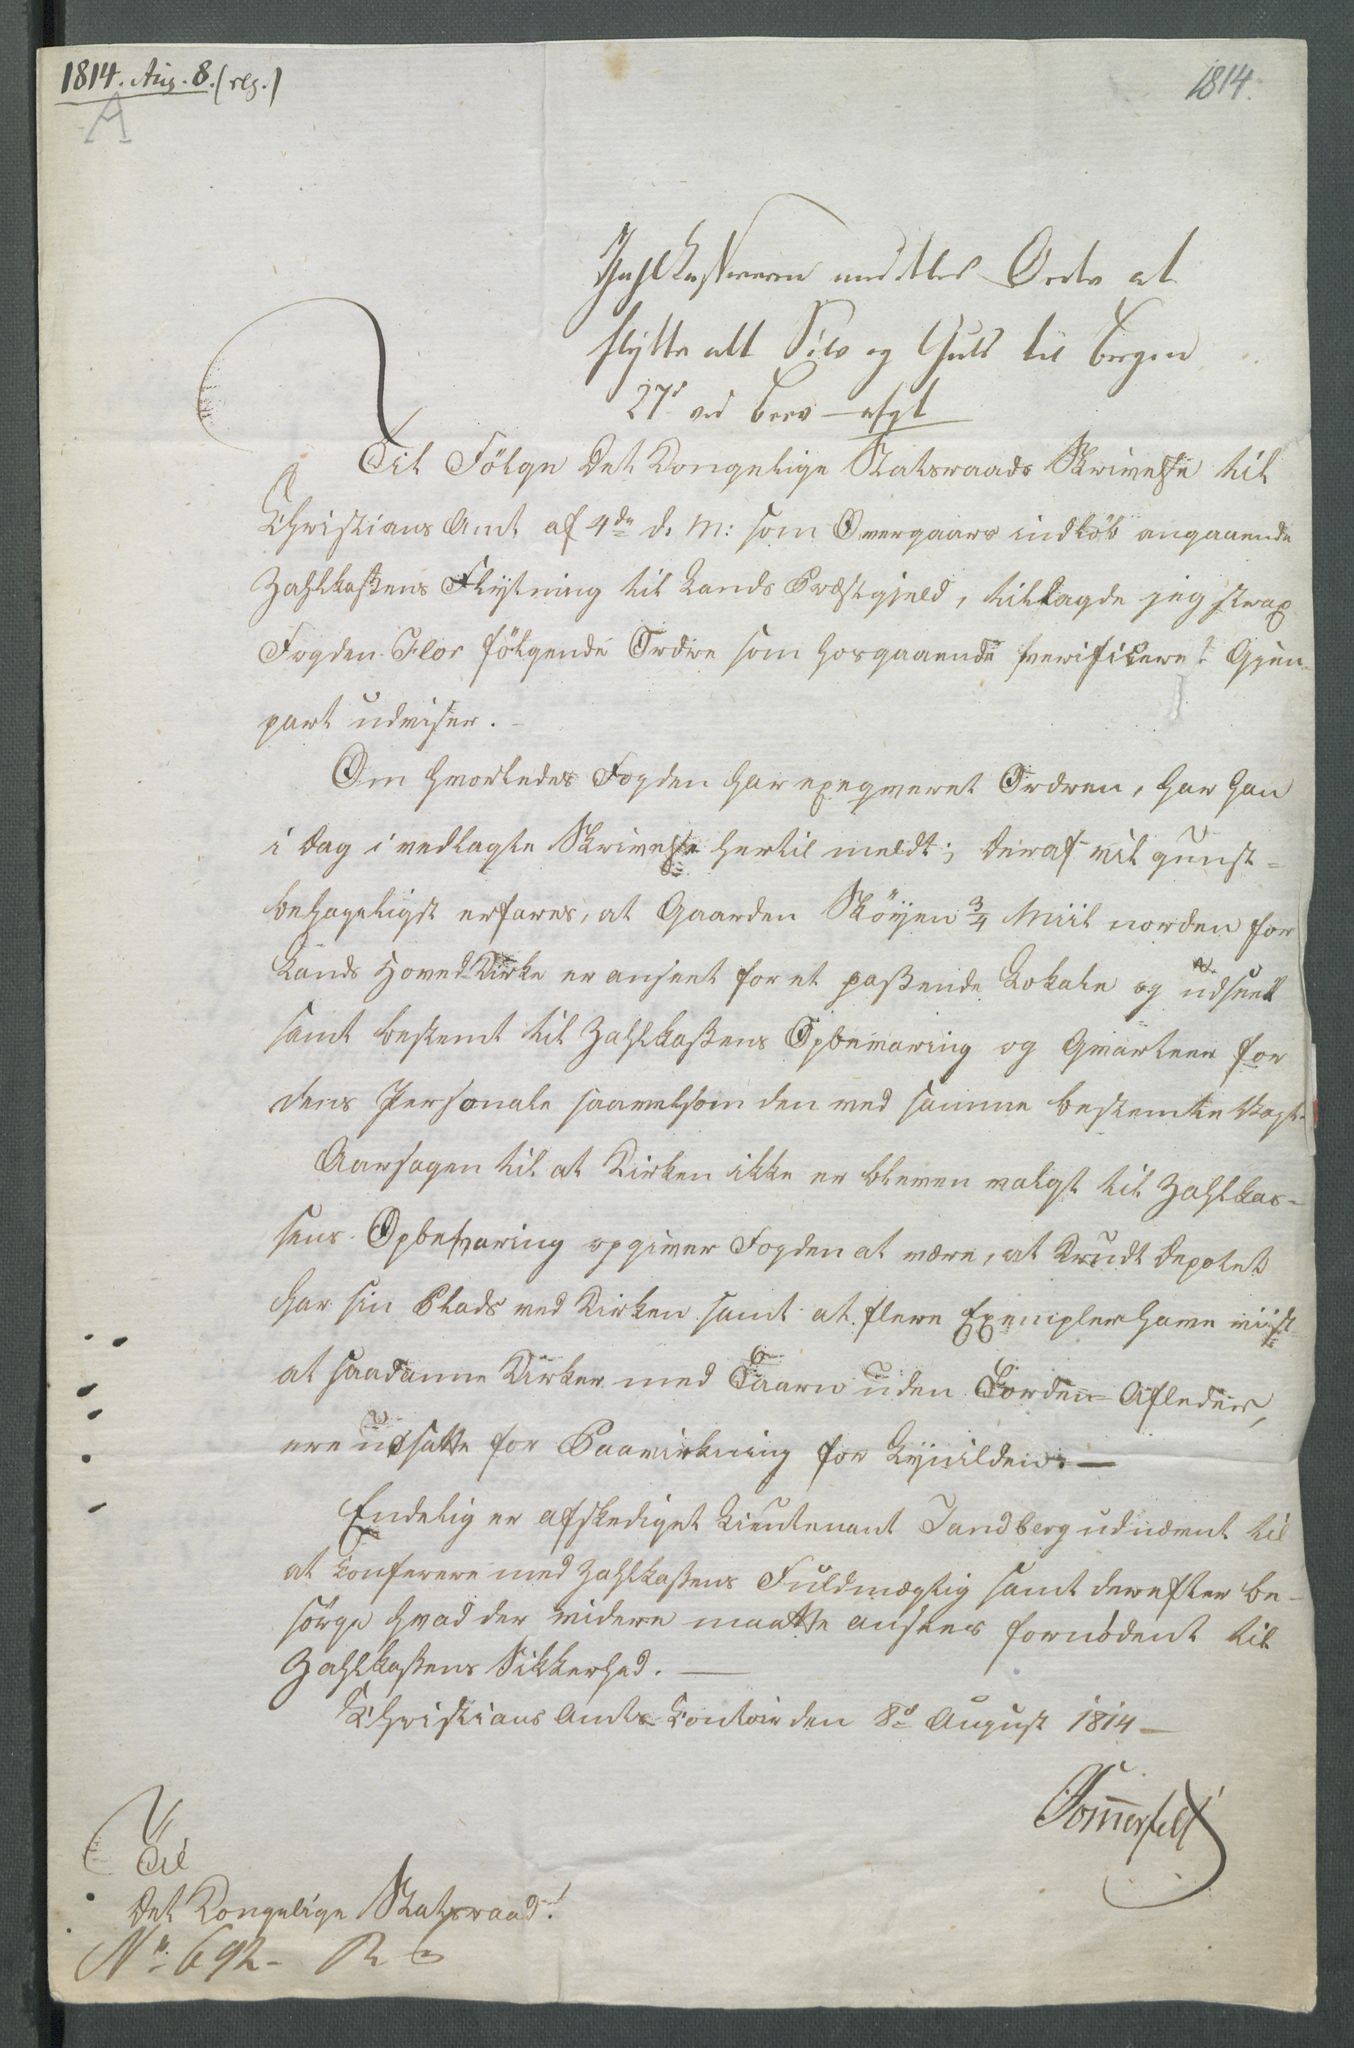 1814. Aug. 8. (reg.)
1814.
A
Zahlkasseren meddeles Ordre at
flytte alt Sølv og Guld til Bergen
27d ved Brev afgt
Til Følge Det Kongelige Statsraads Skrivelse til
Christians Amt af 4de d. M: som Overgaars indløb angaaende
Zahlkaßens Flytning til Lands Præstgjeld, tillagde jeg strax
Fogden Flor følgende Ordre som hosgaaende verificeret Gjen-
part udviser. -
Om hvorledes Fogden har exeqveret Ordren, har han
i Dag i vedlagte Skrivelse hertil meldt; deraf vil gunst-
behageligst erfares, at Gaarden Skøyen 3/4 Miil norden for
Lands Hoved Kirke er anseet for et paßende Lokale og udseet
samt bestemt til Zahlkaßens Opbevaring og Qvarteer for
dens Personale saavelsom den ved samme bestemte Vagt.
Aarsagen til at Kirken ikke er bleven valgt til Zahlkas-
sens Opbevaring opgiver Fogden at være, at Krudt Depotet
har sin Plads ved Kirken samt at flere Exempler have viist
at saadanne Kirker med Taarn uden Torden-Afledere,
ere udsatte for Paavirkning for Lynilden. —
Endelig er afskediget Lieutenant Sandberg udnævnt til
at conferere med Zahlkaßens Fuldmægtig samt derefter be-
sørge hvad der videre maatte ansees fornødent til
Zahlkaßens Sikkerhed. —
Christians Amts-Contoir den 8d August 1814 —
Sommerfelt
Til
Det Kongelige Statsraad!
No. 692-